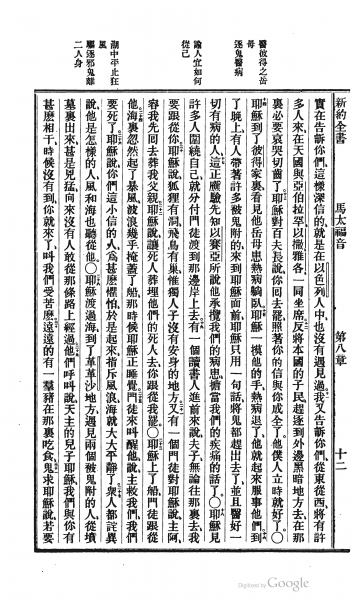 新約全書 馬太福音 第八章 十二
實在告訴你們這樣深信的就是在以色列人中也沒有遇見過我又告訴你們從東從西將有許
多人來在天國與亞伯拉罕以撒雅各一同坐席反將本國的子民趕逐到外邊黑暗地方去在那
裏必要哀哭切齒了耶穌對百夫長說你回去罷照著你的信與你成全他僕人立時就好了○
醫彼得之岳母
耶穌到了彼得家裏看見他岳母患熱病躺臥耶穌一摸他的手熱病退了他就起來服事他們到
逐鬼醫病
了晚上有人帶著許多被鬼附的來到耶穌面前耶穌只用一句話將鬼都趕出去了並且醫好一
切有病的人這正應驗先知以賽亞所說他承攬我們的病患擔當我們的疾痛的話了○耶穌見
論人宜如何從己
許多人圍繞自己就分付門徒渡到那邊岸上去有一個讀書人進前來說夫子無論往那裏去我
要跟從你耶穌說狐狸有洞飛鳥有巢惟獨人子沒有安身的地方又有一個門徒對耶穌說主阿
容我先回去葬我父親耶穌說讓死人葬埋他們的死人去你跟從我罷○耶穌上了船門徒跟從
湖中平止狂風
他海裏忽然起了暴風波浪幾乎掩蓋了船那時候耶穌正睡覺門徒來叫醒他說主救我們我們
要死了耶穌說你們這小信的人為甚麼懼怕於是起來指斥風浪海就大大平靜了衆人都詫異
驅逐邪鬼離二人身
說他是怎樣的人風和海也聽從他○耶穌渡過海到了革革沙地方遇見兩個被鬼附的人從墳
墓裏出來甚是兇猛向來沒有人敢從那條路上經過他們呼叫說天主的兒子耶穌我們與你有
甚麼相干時候沒有到你就來了叫我們受苦麼遠遠的有一羣豬在那裏吃食鬼求耶穌說若要
Digitized by Google